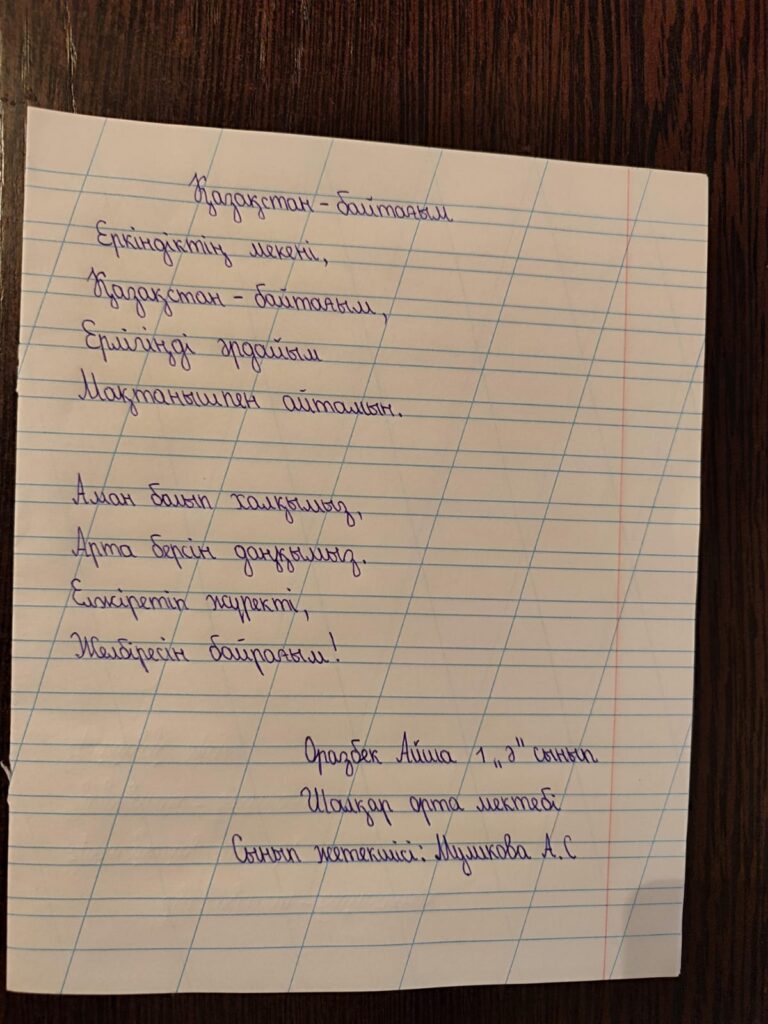 Қазақстан - байтағым
Еркіндіктің мекені,
Қазақстан - байтағым,
Ерлігіңді әрдайым
Мақтанышпен айтамын.
Аман болып халқымыз,
Арта берсін даңқымыз.
Елжіретіп жүректі,
Желбіресін байрағым!
Оразбек Айша 1 „ә" сынып
Шалқар орта мектебі
Сынып жетекшісі: Мушкова А.С